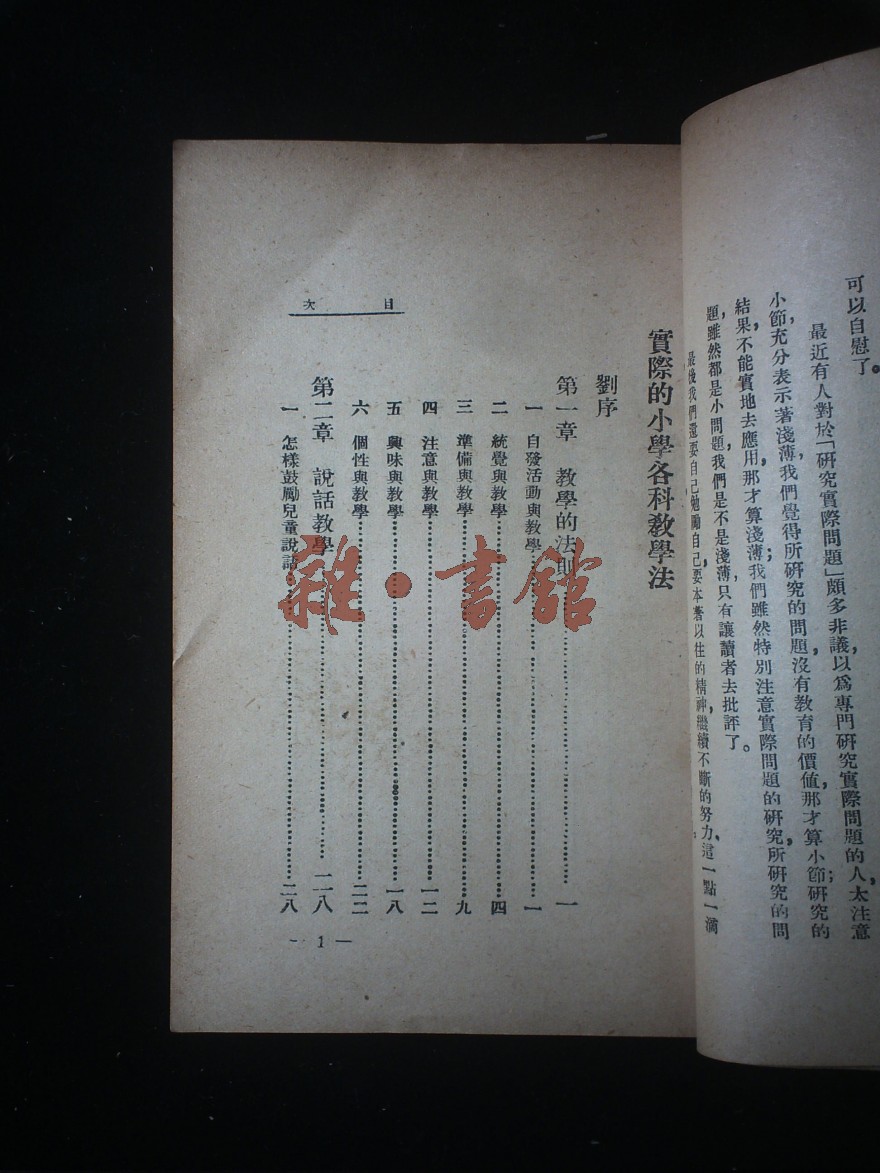 可以自慰了。
最近有人對於「研究實際問題」頗多非議，以爲專門研究實際問題的人，太注意
小節，充分表示著淺薄，我們覺得所研究的問題，沒有教育的價值，那才算小節；研究的
結果，不能實地去應用，那才算淺薄；我們雖然特別注意實際問題的研究，所研究的問
題，雖然都是小問題，我們是不是淺薄，只有讓讀者去批評了。
最後我們還要自己勉勵自己，要本著以往的精神，繼續不斷的努力，這一點一滴
實際的小學各科教學法
目次
劉序
第一章 教學的法則……一
一 自發活動與教學……一
二 統覺與教學……四
三 準備與教學……九
四 注意與教學……一二
五 興味與教學……一八
六 個性與教學……二二
第二章 說話教學……二八
一 怎樣鼓勵兒童說話……二八
— 1 —
雜·書館